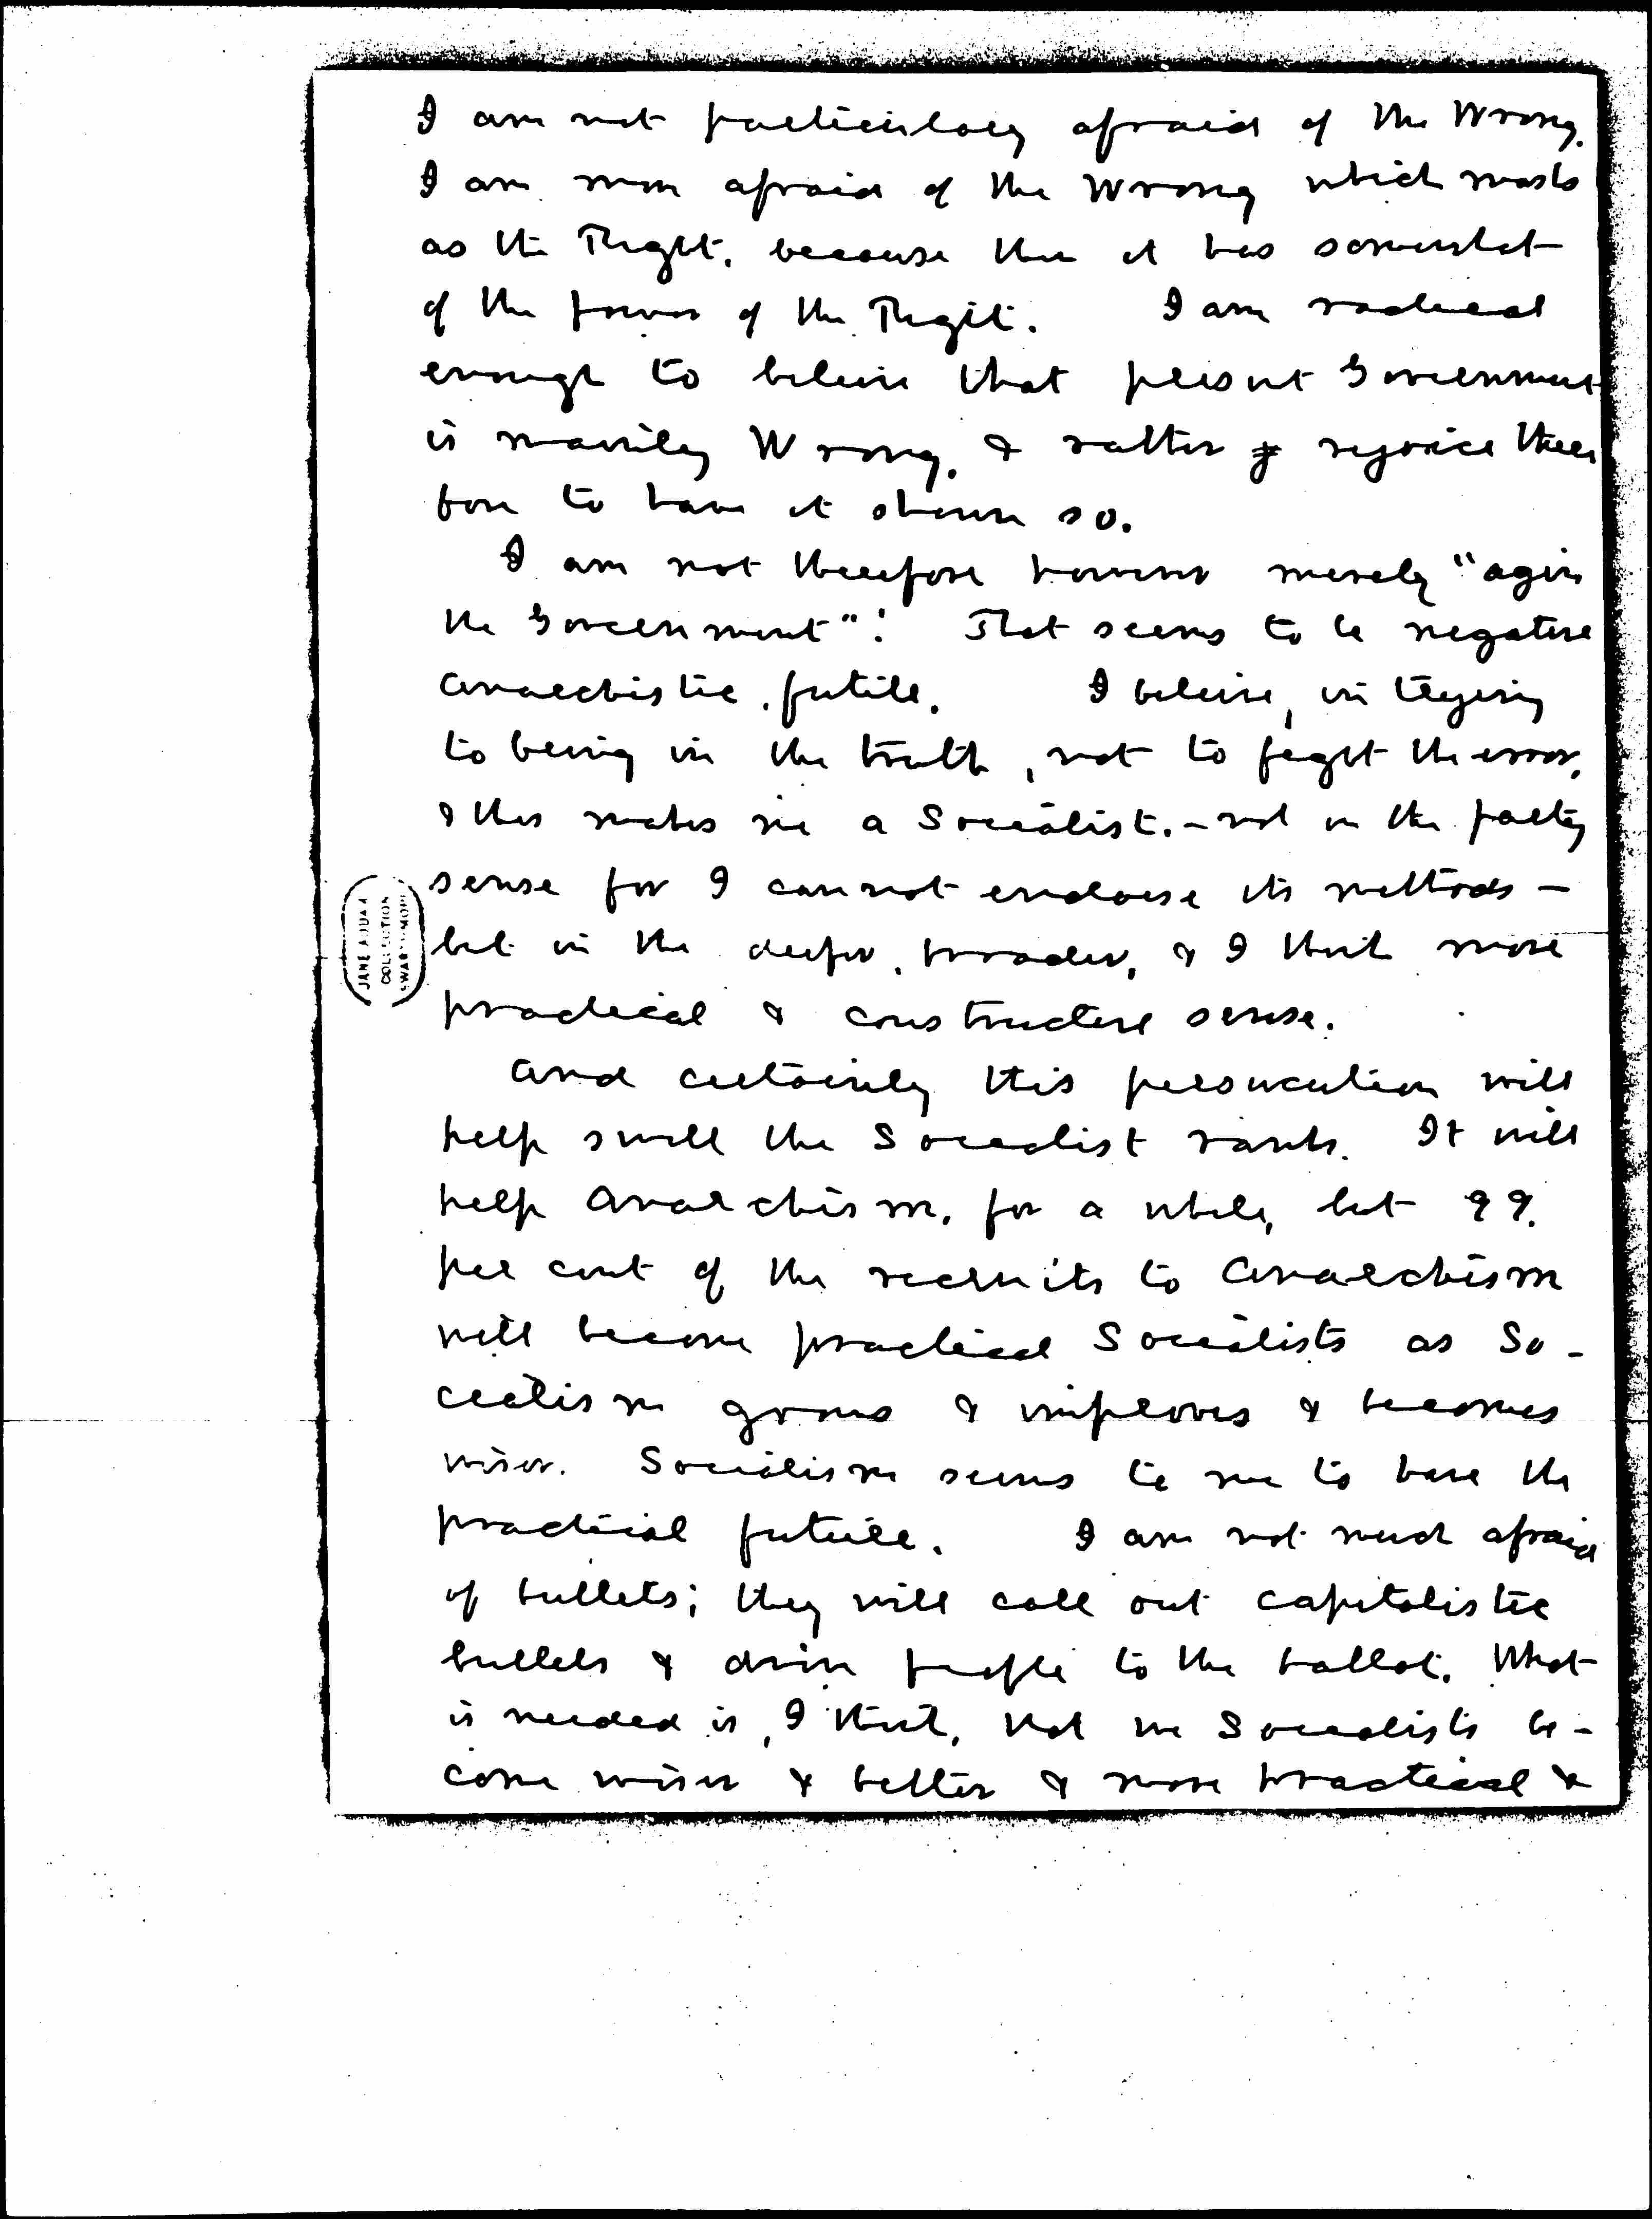 I am not particularly afraid of the Wrong.
I am more afraid of the Wrong which masks
as the Right, because then it has somewhat
of the power of the Right. I am radical
enough to believe that present Government
is mainly Wrong, & rather rejoice there
fore to have it shown so.
I am not therefore however merely "agin
the Government"! That seems to be negative
anarchistic, futile. I believe, in trying
to bring in the truth, not to fight the error,
& this makes me a Socialist. – not in the party
sense for I cannot endorse its methods –
but in the deeper, broader, & I think more
practical & constructive sense.
And certainly this persecution will
help swell the Socialist ranks. It will
help Anarchism, for a while, but 99.
per cent of the recruits to Anarchism
will become practical Socialists as So-
cialism grows & improves & becomes
wiser. Socialism seems to me to have the
practical future. I am not much afraid
of bullets; they will call out capitalistic
bullets & drive people to the ballot. What
is needed is, I think, that we Socialists be-
come wiser & better & more practical &
JANE ADDAMS
COLLECTION
SWARTHMORE